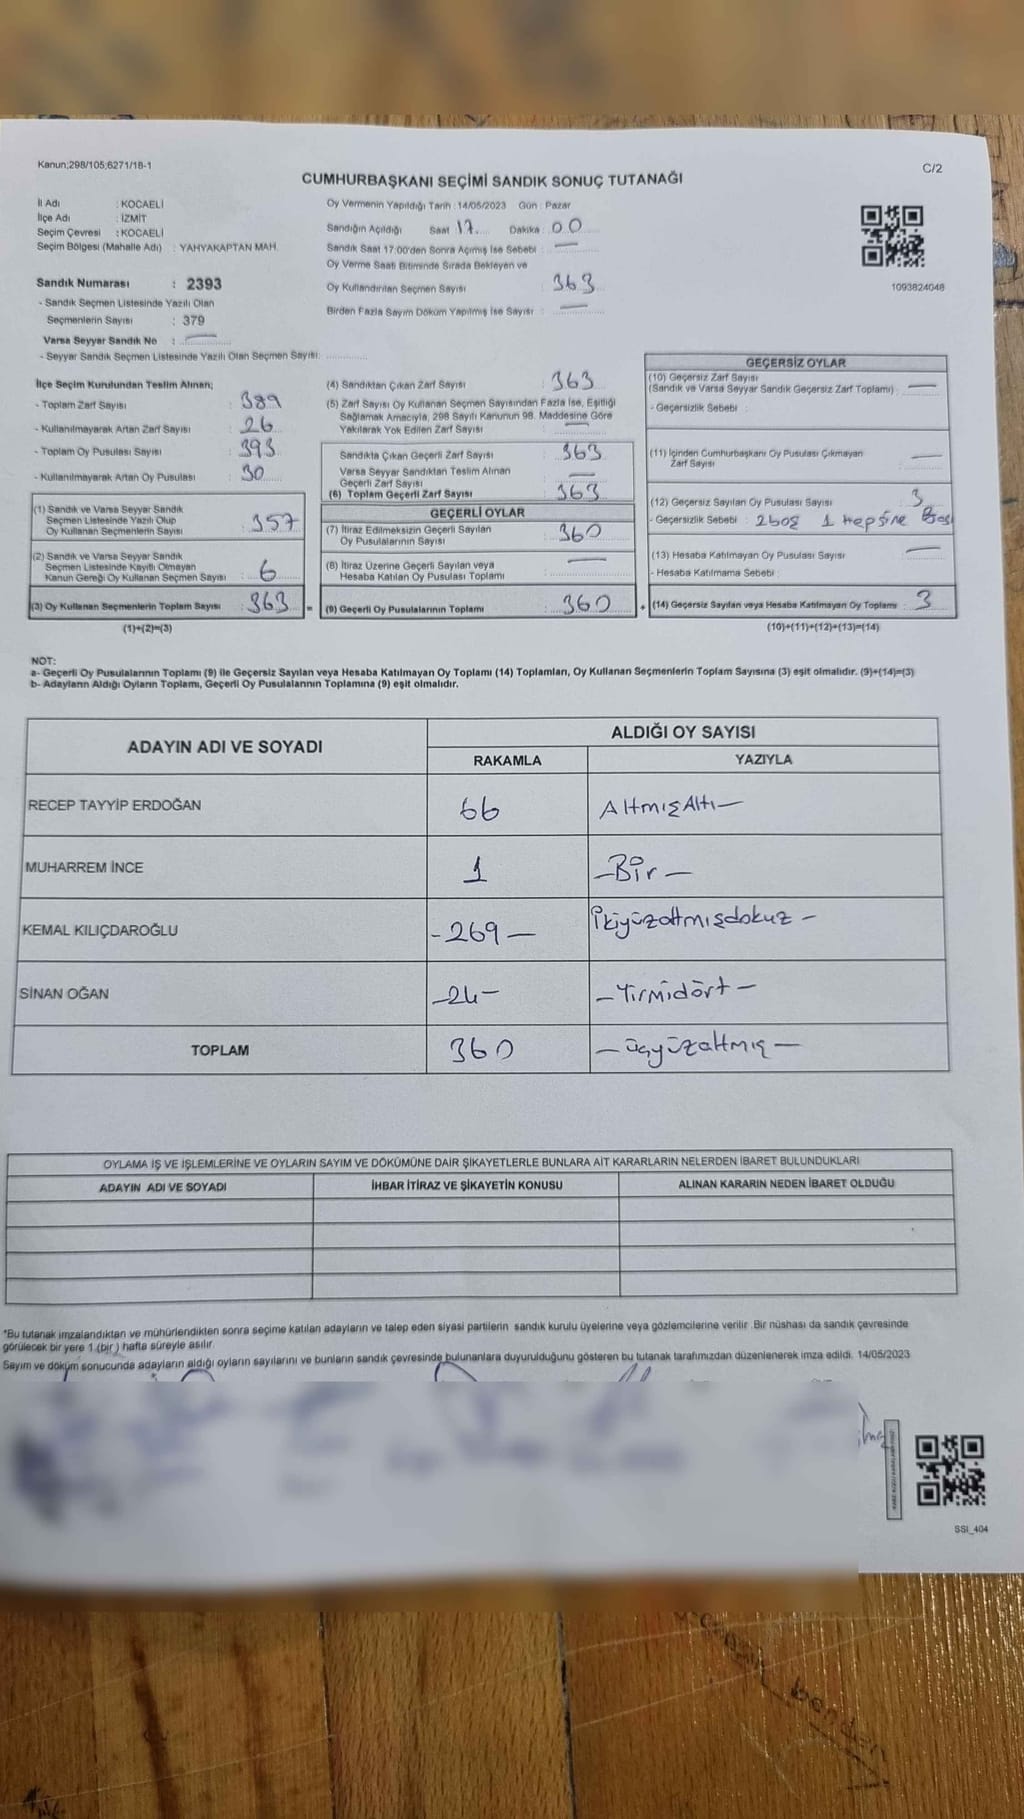 Kanun;298/105;6271/18-1
C/2
CUMHURBAŞKANI SEÇİMİ SANDIK SONUÇ TUTANAĞI
İl Adı : KOCAELİ
İlçe Adı : İZMİT
Seçim Çevresi : KOCAELİ
Seçim Bölgesi (Mahalle Adı) : YAHYAKAPTAN MAH.
Sandık Numarası : 2393
- Sandık Seçmen Listesinde Yazılı Olan
Seçmenlerin Sayısı : 379
Varsa Seyyar Sandık No :
- Seyyar Sandık Seçmen Listesinde Yazılı Olan Seçmen Sayısı:
Oy Vermenin Yapıldığı Tarih :14/05/2023 Gün : Pazar
Sandığın Açıldığı Saat 17 Dakika : 00
Sandık Saat 17:00'den Sonra Açılmış İse Sebebi : —
Oy Verme Saati Bitiminde Sırada Bekleyen ve
Oy Kullandırılan Seçmen Sayısı 363
Birden Fazla Sayım Döküm Yapılmış İse Sayısı : —
1093824048
İlçe Seçim Kurulundan Teslim Alınan;
- Toplam Zarf Sayısı : 389
- Kullanılmayarak Artan Zarf Sayısı : 26
- Toplam Oy Pusulası Sayısı : 393
- Kullanılmayarak Artan Oy Pusulası : 30
(1) Sandık ve Varsa Seyyar Sandık
Seçmen Listesinde Yazılı Olup
Oy Kullanan Seçmenlerin Sayısı : 357
(2) Sandık ve Varsa Seyyar Sandık
Seçmen Listesinde Kayıtlı Olmayan
Kanun Gereği Oy Kullanan Seçmen Sayısı : 6
(3) Oy Kullanan Seçmenlerin Toplam Sayısı : 363 =
(1)+(2)=(3)
(4) Sandıktan Çıkan Zarf Sayısı : 363
(5) Zarf Sayısı Oy Kullanan Seçmen Sayısından Fazla İse, Eşitliği
Sağlamak Amacıyla, 298 Sayılı Kanunun 98. Maddesine Göre
Yakılarak Yok Edilen Zarf Sayısı : —
Sandıkta Çıkan Geçerli Zarf Sayısı : 363
Varsa Seyyar Sandıktan Teslim Alınan
Geçerli Zarf Sayısı : —
(6) Toplam Geçerli Zarf Sayısı : 363
GEÇERLİ OYLAR
(7) İtiraz Edilmeksizin Geçerli Sayılan
Oy Pusulalarının Sayısı : 360
(8) İtiraz Üzerine Geçerli Sayılan veya
Hesaba Katılan Oy Pusulası Toplamı : —
(9) Geçerli Oy Pusulalarının Toplamı : 360 +
GEÇERSİZ OYLAR
(10) Geçersiz Zarf Sayısı
(Sandık ve Varsa Seyyar Sandık Geçersiz Zarf Toplamı) : —
- Geçersizlik Sebebi :
(11) İçinden Cumhurbaşkanı Oy Pusulası Çıkmayan
Zarf Sayısı : —
(12) Geçersiz Sayılan Oy Pusulası Sayısı : 3
- Geçersizlik Sebebi : 2 boş 1 Hepsine
(13) Hesaba Katılmayan Oy Pusulası Sayısı : —
- Hesaba Katılmama Sebebi :
(14) Geçersiz Sayılan veya Hesaba Katılmayan Oy Toplamı : 3
(10)+(11)+(12)+(13)=(14)
NOT:
a- Geçerli Oy Pusulalarının Toplamı (9) ile Geçersiz Sayılan veya Hesaba Katılmayan Oy Toplamı (14) Toplamları, Oy Kullanan Seçmenlerin Toplam Sayısına (3) eşit olmalıdır. (9)+(14)=(3)
b- Adayların Aldığı Oyların Toplamı, Geçerli Oy Pusulalarının Toplamına (9) eşit olmalıdır.
ADAYIN ADI VE SOYADI
ALDIĞI OY SAYISI
RAKAMLA YAZIYLA
RECEP TAYYİP ERDOĞAN 66 AltmışAltı—
MUHARREM İNCE 1 —Bir—
KEMAL KILIÇDAROĞLU -269— İkiyüzaltmışdokuz -
SİNAN OĞAN -24- -Yirmidört-
TOPLAM 360 —üçyüzaltmış—
OYLAMA İŞ VE İŞLEMLERİNE VE OYLARIN SAYIM VE DÖKÜMÜNE DAİR ŞİKAYETLERLE BUNLARA AİT KARARLARIN NELERDEN İBARET BULUNDUKLARI
ADAYIN ADI VE SOYADI İHBAR İTİRAZ VE ŞİKAYETİN KONUSU ALINAN KARARIN NEDEN İBARET OLDUĞU
*Bu tutanak imzalandıktan ve mühürlendikten sonra seçime katılan adayların ve talep eden siyasi partilerin sandık kurulu üyelerine veya gözlemcilerine verilir .Bir nüshası da sandık çevresinde
görülecek bir yere 1 (bir ) hafta süreyle asılır.
Sayım ve döküm sonucunda adayların aldığı oyların sayılarını ve bunların sandık çevresinde bulunanlara duyurulduğunu gösteren bu tutanak tarafımızdan düzenlenerek imza edildi. 14/05/2023
SSI_404
benden